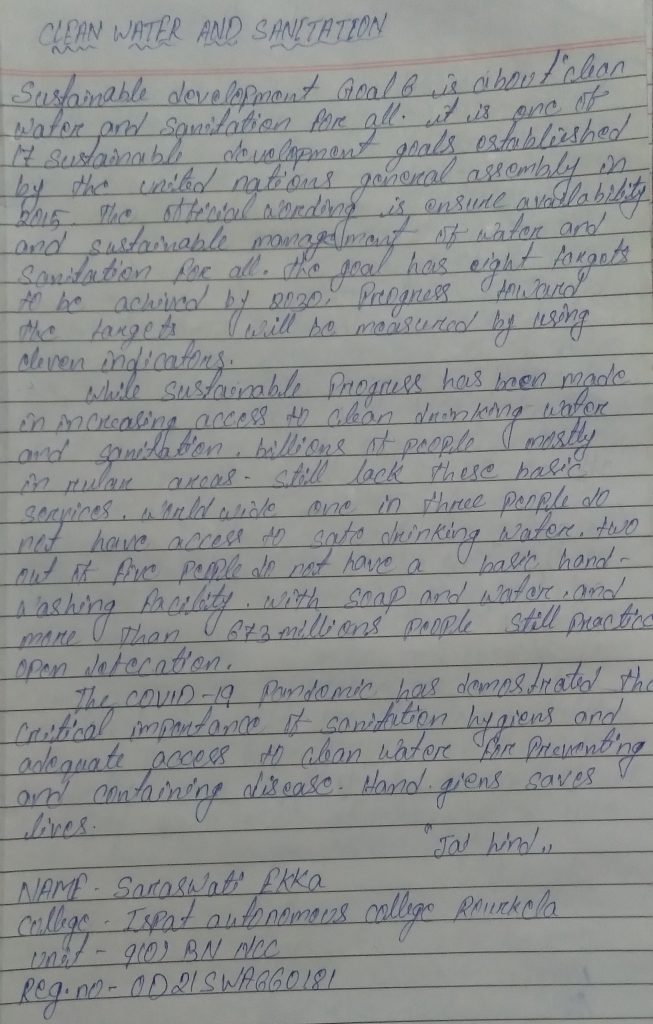 CLEAN WATER AND SANITATION
Sustainable development Goal 6 is about "clean
water and sanitation for all. it is one of
17 sustainable development goals established
by the united nations general assembly in
2015. The official wording is ensure availability
and sustainable management of water and
sanitation for all. the goal has eight targets
to be achived by 2030. Progress toward
the targets will be measured by using
eleven indicators.
while sustainable Progress has been made
in increasing access to clean drinking water
and sanitation. billions of people mostly
in rular areas - still lack these basic
services. world wide one in three people do
not have access to safe drinking water. two
out of five people do not have a basic hand-
washing facility. with soap and water. and
more than 673 millions people still practice
open defecation.
The COVID-19 Pandemic has demostrated the
critical importance of sanitation hygiens and
adequate access to clean water for Preventing
and containing disease. Hand. giens saves
lives.
"Jai hind"
NAME - Saraswati EKKA
college - Ispat autonomous college Rourkela
unit - 9(O) BN NCC
Reg. no - OD21SWA660181